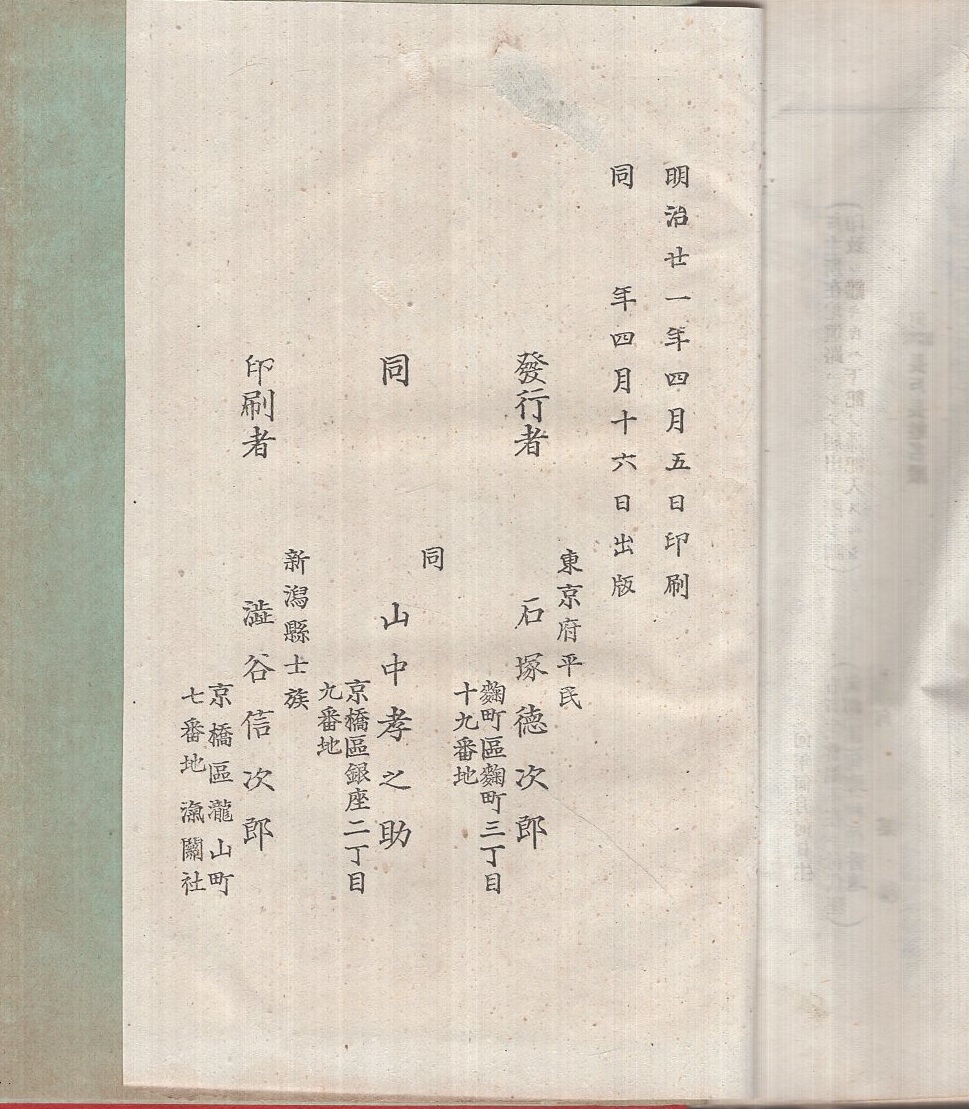 明治廿一年四月五日印刷
同年四月十六日出版
東京府平民
發行者 石塚德次郎
麴町區麴町三丁目
十九番地
同
同 山中孝之助
京橋區銀座二丁目
九番地
新潟縣士族
印刷者 澁谷信次郎
京橋區瀧山町
七番地 滊關社